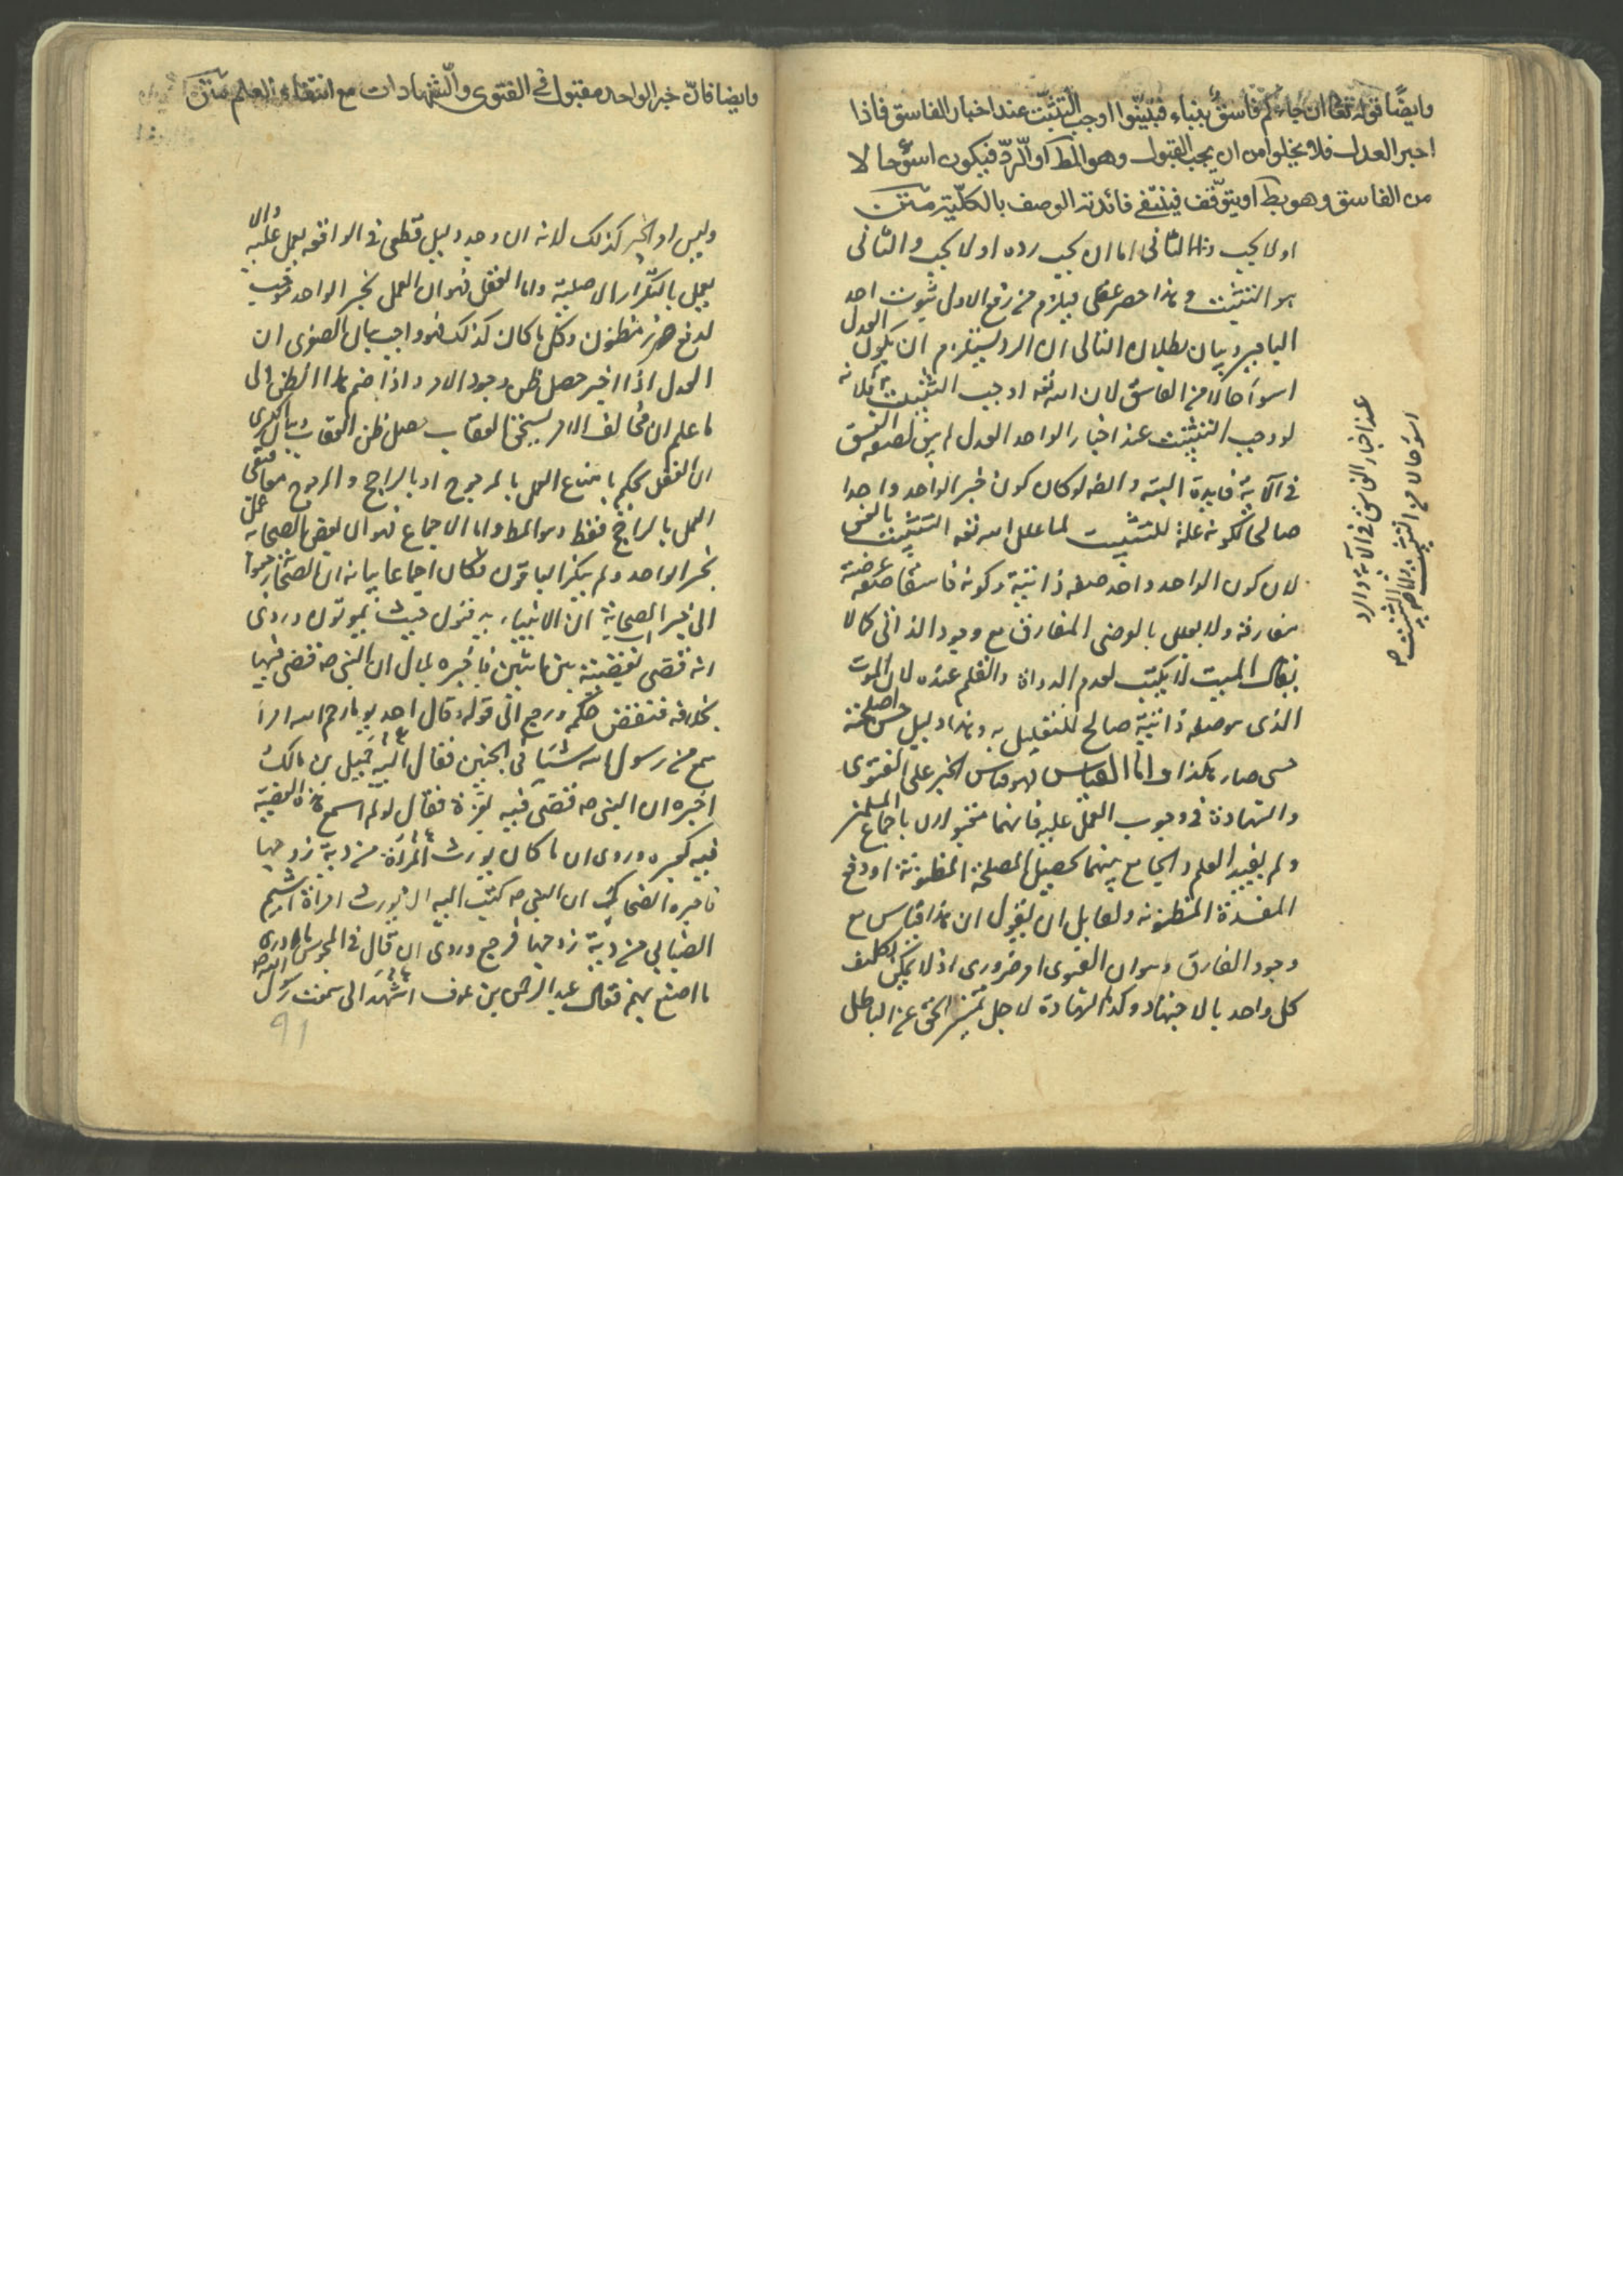 وايضًا قوله تعالى ان جاءكم فاسقٌ بنباء فتبيّنوا اوجب التثبّت عند اخبار الفاسق فاذا
اخبر العدل فلا يخلوا من ان يجب القبول وهو المط او الردّ فيكون اسوءحالا
من الفاسق وهو بط او يتوقّف فينتفي فائدة الوصف بالكليّة متن
او لا يجب والثاني اما ان يجب رده او لا يجب والثاني
هو التثبت وهذا حصر عقلي فيلزم من رفع الاول ثبوت احد
الباقيين وبيان بطلان التالي ان الرد يستلزم ان يكون العدل
اسوأ حالا من الفاسق لان الله تعه اوجب التثبت فلانه
لو وجب التثبت عند اخبار الواحد العدل لم يبق لصفة الفسق
في الآية فايدة البته وايضه لو كان كون خبر الواحد واحدا
صالحا لكونه علة للتثبت لما علل الله تعه التثبت بالفسق
لان كون الواحد واحد صفه ذاتية وكونه فاسقا صفة عرضية
مفارقة ولا يعلل بالعرضي المفارق مع وجود الذاتي كما لا
يقال الميت لا يكتب لعدم الدواة والقلم عنده لان الموت
الذي هو صفة ذاتية صالح للتعليل به وهذا دليل حسن اصلحته
حتى صار هكذا واما القياس فهو قياس الخبر على الفتوى
والشهادة في وجوب العمل عليه فانهما مقبولان باجماع المسلمين
ولم يفيد العلم والجامع بينهما تحصيل المصلحة المظنونة او دفع
المفسدة المظنونه ولقايل ان يقول ان هذا قياس مع
وجود الفارق وهو ان الفتوى امر ضروري اذ لا يمكن تكليف
كل واحد بالاجتهاد وكذا الشهادة لاجل تميز الحق عن الباطل
عند اخبار الفاسق في الآية والرد
اسوء حالا من التثبت واما
التثبت صح
وايضا فان خبر الواحد مقبول في الفتوى والشهادات مع انتفاء العلم متن
وليس امر الخبر كذلك لانه ان وجد دليل قطعي في الواقعه يعمل عليه والا
يعمل بالاصلية واما العقل فهو ان العمل بخبر الواحد موجب
لدفع ضرر مظنون وكل ما كان كذلك فهو واجب بيان الصغرى ان
العدل اذا اخبر حصل ظن وجود الامر واذا ضم هذا الظن الى
ما علم ان مخالف الامر يستحق العقاب حصل ظن العقاب وبيان الكبرى
ان العقل يحكم بامتناع العمل بالمرجوح او بالراجح والمرجوح معا فبقي
العمل بالراجح فقط وهو المط واما الاجماع فهو ان بعض الصحابه عمل
بخبر الواحد ولم ينكر الباقون فكان اجماعا بيانه ان الصحابة رجعوا
الى خبر الصحابة ان الانبياء يدفنون حيث يموتون وروى
انه قضى بقضية بين اثنين فاخبره بلال ان النبي صه قضى فيها
بخلافه فنقض حكمه ورجع الى قوله وقال رحم الله امرأ
سمع من رسول الله شيئا في الجنين فقال اليه حمل بن مالك
اخبره ان النبي صه قضى فيه بغرة فقال لو لم اسمع هذه القضية
فيه بغيره وروى ان ما كان يورث المرأة من دية زوجها
فاخبره الضحاك ان النبي صه كتب اليه ان يورث امراة اشيم
الضبابي من دية زوجها فرجع وروى ان قال في المجوس ما ادرى
ما اصنع بهم فقال عبد الرحمن بن عوف اشهد اني سمعت رسول الله صه
91